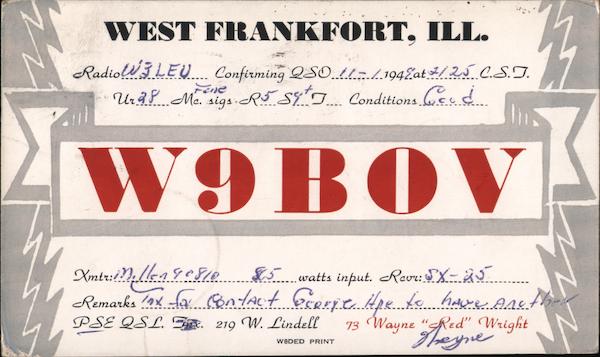 WEST FRANKFORT, ILL.
Radio W3LEU Confirming QSO 11-1 1949 at 2125 C.S.T.
Ur 28 Mc. Fone sigs R5 S9+ T Conditions Good
W9BOV
Xmtr: 85 watts input. Rcvr: SX-25
Remarks Tnx Fr Contact George Hpe to have Another
PSE QSL. 219 W. Lindell 73 Wayne "Red" Wright
Wayne
W8DED PRINT